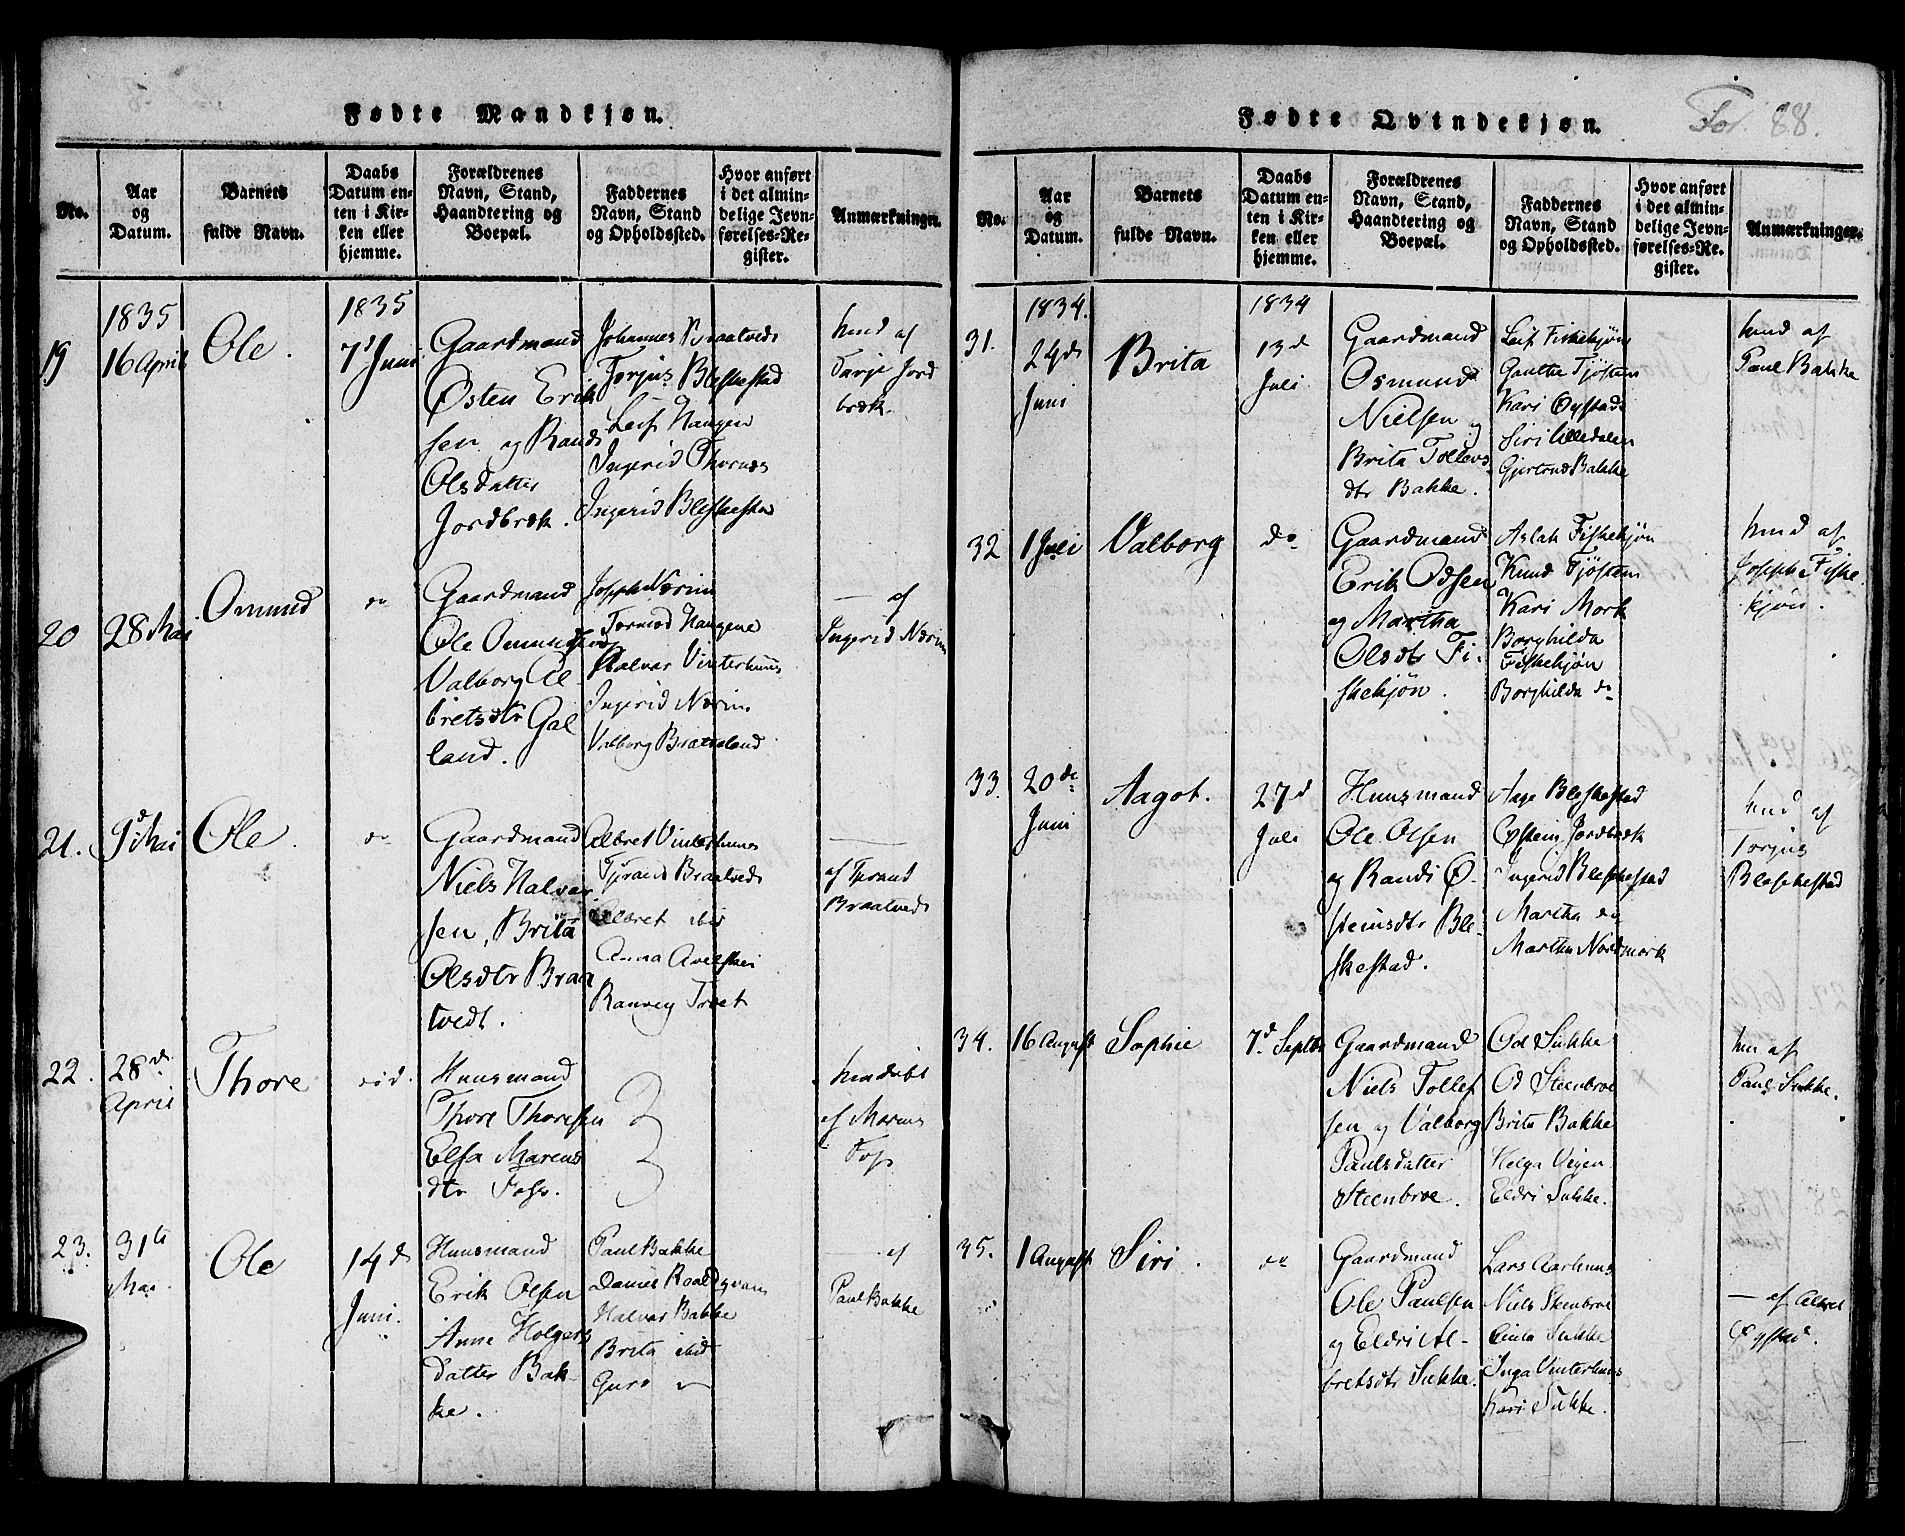 Fødte Mandkjøn.
No.
Aar
og
Datum.
Barnets
fulde Navn.
Daabs
Datum en-
ten i Kir-
ken eller
hjemme.
Forældrenes
Navn, Stand,
Haandtering og
Boepæl.
Faddernes
Navn, Stand
og Opholdssted.
Hvor anført
i det almin-
delige Jevn-
førelses-Re-
gister.
Anmærkninger.
19
1835
16 April
Ole.
1835
7d Juni
Gaardmand
Østen Erik
sen og Rand
Olsdatter
Jordbræk.
Johannes Braatveds
Torjus Bleskestad
Leif Haugen
Ingerid Thornes
Ingerid Bleskestad
hmd af
Tarje Jord
bræk.
20
28 Mai
Omund
do
Gaardmand
Ole Omundsen
Valborg Al-
bretsdtr Gal
land.
Joseph Nærim
Tormod Haugene
Halvar Vinterhuus
Ingerid Nærim
Valborg Brateland
— af
Ingerid Nærim
21.
9d Mai
Ole
do
Gaardmand
Niels Halvar
sen, Brita
Olsdtr Braa
tvedt.
Albret Vinterhuus
Tjerand Braatveds
Albret ibid
Anna
Ranveig Træet
—
af Thrand
Braatveds
22.
28de
April
Thore
Huusmand
Thore Thoresen
Elsa Marens
dtr Foss.
hmdøbt
af Marens
Foss
23.
31te
Mai
Ole
14d
Juni.
Huusmand
Erik Olsen
Anne Holgers
datter Bak-
ke.
Paul Bakke
Daniel Roaldqvam
Halvar Bakke
Brita ibid
Guro —
— af
Paul Bakke
Fødte Qvindekjøn.
Fol. 88.
No.
Aar
og
Datum.
Barnets
fulde Navn.
Daabs
Datum en-
ten i Kir-
ken eller
hjemme.
Forældrenes
Navn, Stand,
Haandtering og
Boepæl.
Faddernes
Navn, Stand
og Opholdssted.
Hvor anført
i det almin-
delige Jevn-
førelses-Re-
gister.
Anmærkninger.
31.
1834.
24d
Juni
Brita
1834
13d
Juli
Gaardmand
Osmund
Nielsen og
Brita Tollevs-
dtr Bakke.
Leif Fiskekjøn
Gauthe Tjøsten
Kari Øystad
Siri Lilledalen
Gjertrud Bakke
hmd af
Paul Bakke
32
1 Juli
Valborg
do
Gaardmand
Erik Odsen
og Martha
Olsdtr Fi-
skekjøn.
Aslak Fiskekjøn
Knud Tjøsten
Kari Mork
Borghilda
Fiskekjøn
Borghilda do
hmd af
Joseph Fiske
kjøn.
33.
20de
Juni
Aagot.
27d
Juli
Huusmand
Ole Olsen
og Randi Ø-
steinsdtr Ble-
skestad.
Aage Bleskestad
Eystein Jordbræk
Ingerid Bleskestad
Martha do
Martha Nordmork
hmd af
Torjus
Bleskestad
34.
16 August
Sophie
7d Septbr
Gaardmand
Niels Tollef
sen og Valborg
Paulsdatter
Steenbroe.
Od Sukke
Od Steenbroe
Brita Bakke
Helga Vegen
Eldri Sukke.
hm af
Paul Sukke.
35.
1 August
Siri.
do
Gaardmand
Ole Paulsen
og Eldri Al-
bretsdtr Sukke.
Lars Aarhuus
Niels Steenbroe
Sukke
Inga Vinterhuus
Kari Sukke.
— af Albret
Øystad.